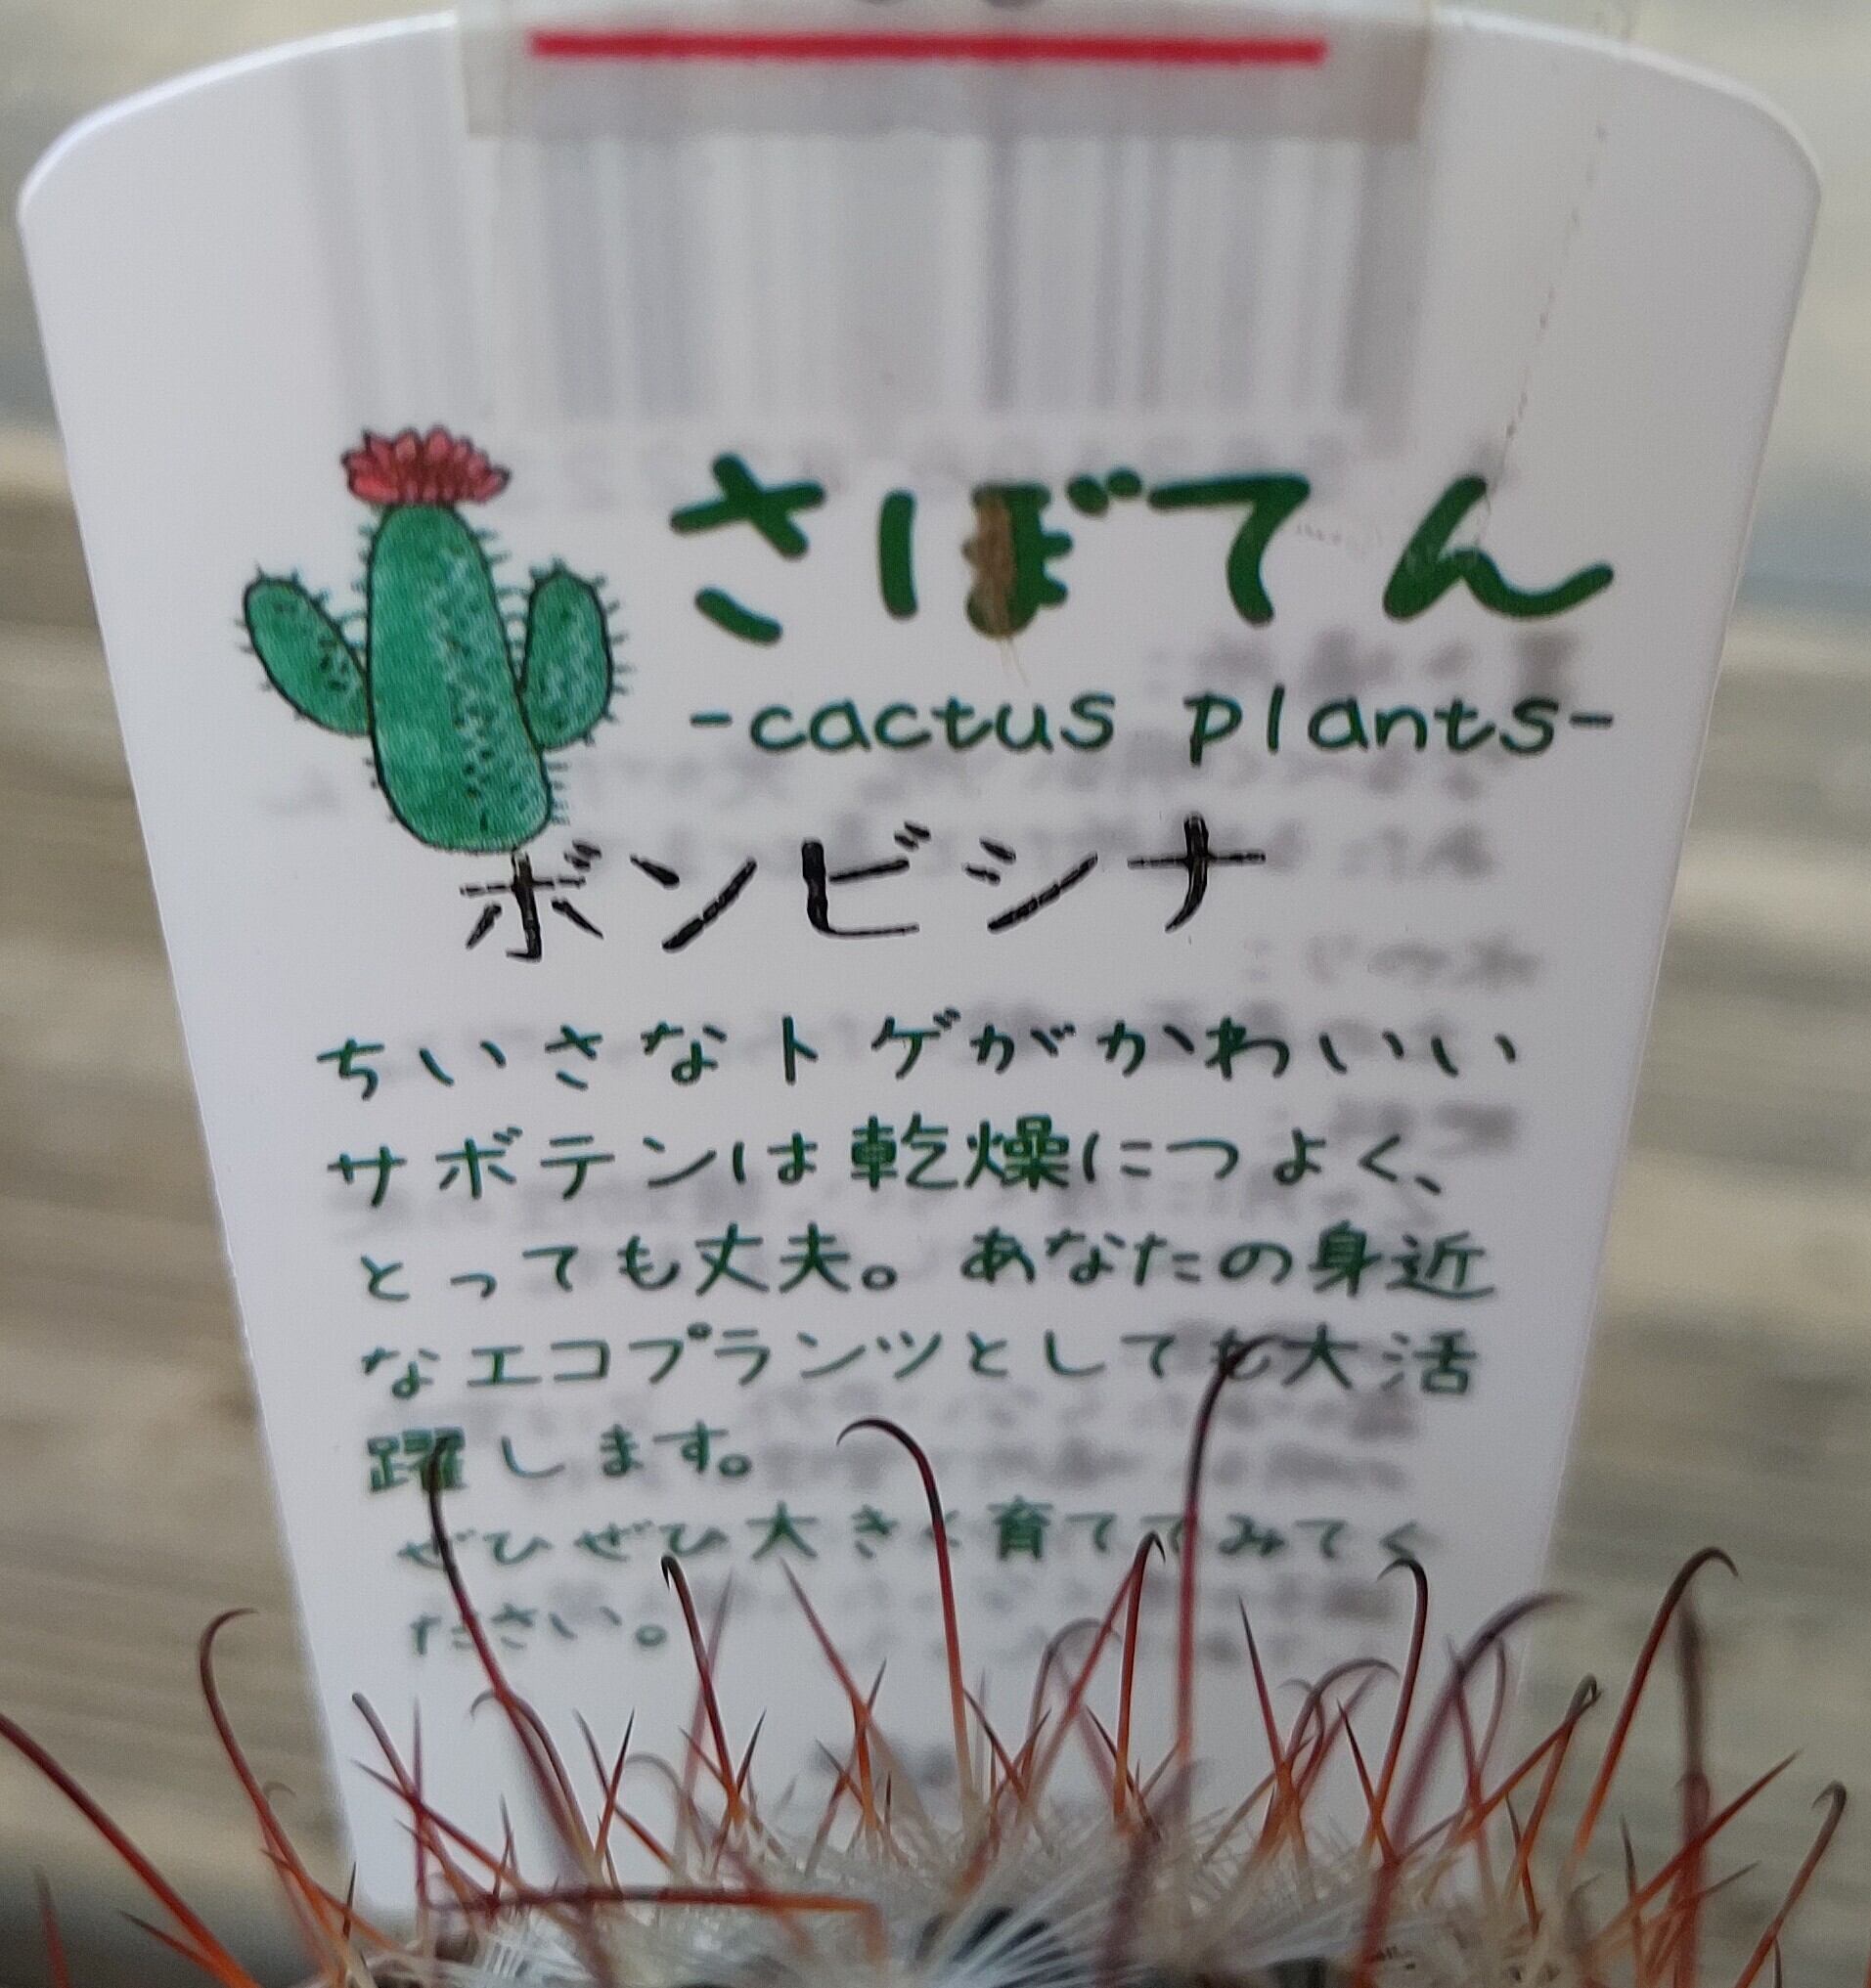 さぼてん
-cactus plants-
ボンビシナ
ちいさなトゲがかわいい
サボテンは乾燥につよく、
とっても丈夫。あなたの身近
なエコプランツとしても大活
躍します。
ぜひぜひ大きく育ててみてく
ださい。